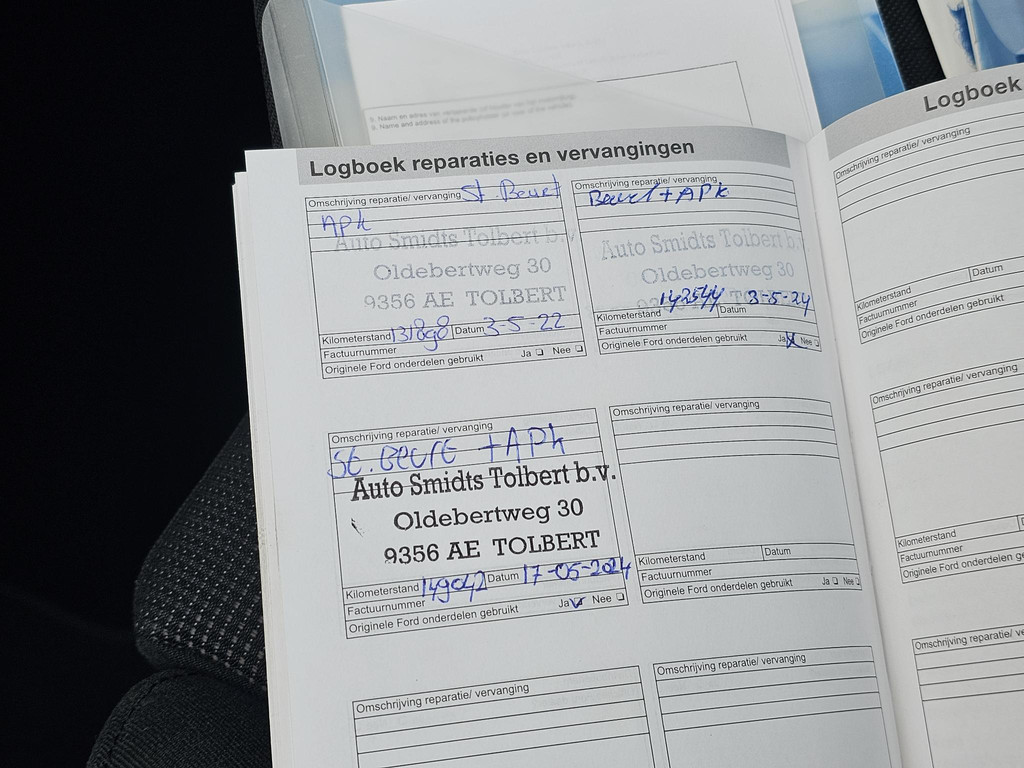 Logboek reparaties en vervangingen
Omschrijving reparatie/ vervanging St. Beurt
APK
Auto Smidts Tolbert b.v.
Oldebertweg 30
9356 AE TOLBERT
Kilometerstand 131898 Datum 3-5-22
Factuurnummer
Originele Ford onderdelen gebruikt Ja Nee
Omschrijving reparatie/ vervanging
Beurt + APK
Auto Smidts Tolbert b.
Oldebertweg 30
Kilometerstand 142544 Datum 3-5-24
Factuurnummer
Originele Ford onderdelen gebruikt Ja Nee
Omschrijving reparatie/ vervanging
St. Beurt + APK
Auto Smidts Tolbert b.v.
Oldebertweg 30
9356 AE TOLBERT
Kilometerstand 149042 Datum 17-05-2024
Factuurnummer
Originele Ford onderdelen gebruikt Ja Nee
Omschrijving reparatie/ vervanging
Kilometerstand Datum
Factuurnummer
Originele Ford onderdelen gebruikt Ja Nee
Omschrijving reparatie/ vervanging
Omschrijving reparatie/ vervanging
Logboek
Omschrijving reparatie/ vervanging
Kilometerstand Datum
Factuurnummer
Originele Ford onderdelen gebruikt
Omschrijving reparatie/ vervanging
Kilometerstand
Factuurnummer
Originele Ford onderdelen gebruikt
Omschrijving reparatie/ ver